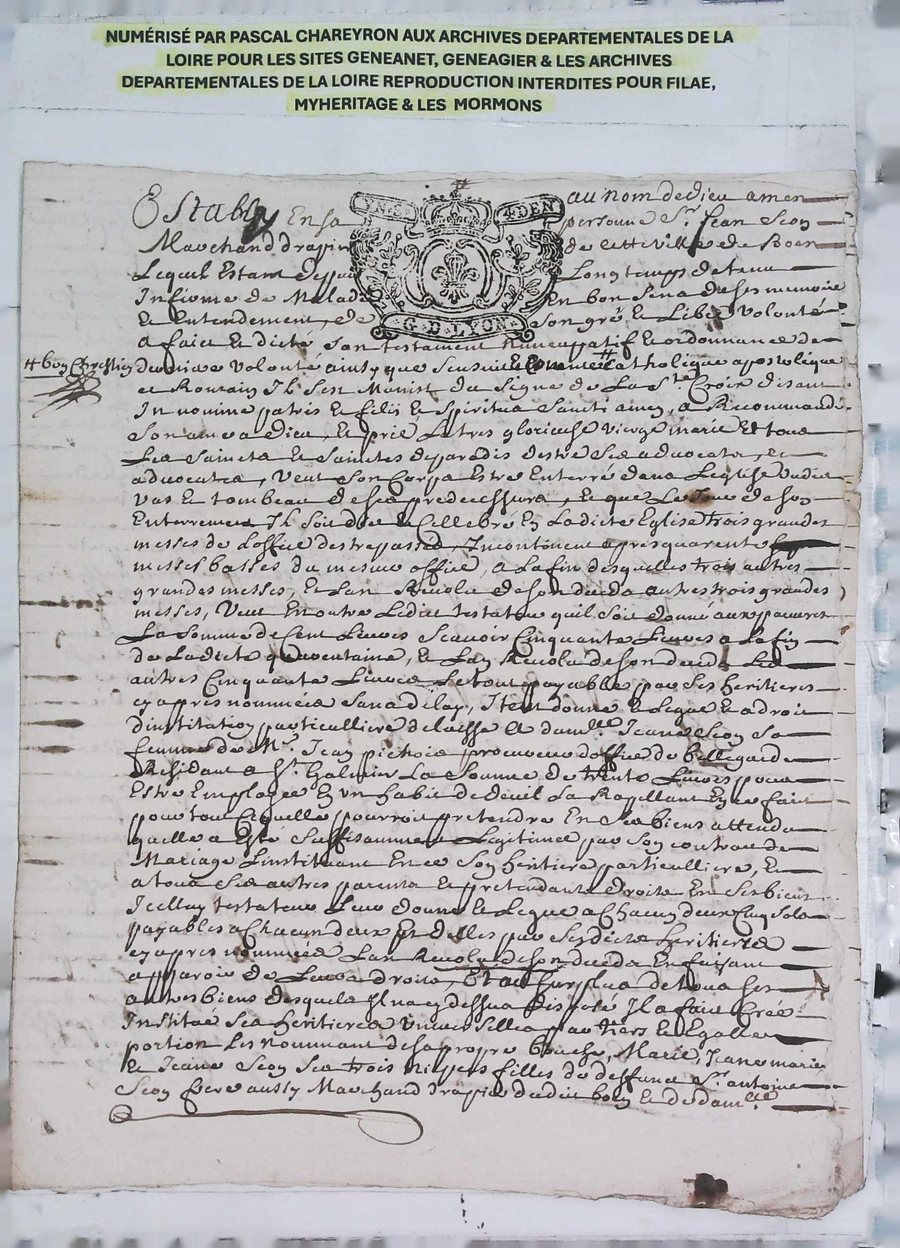 NUMÉRISÉ PAR PASCAL CHAREYRON AUX ARCHIVES DEPARTEMENTALES DE LA
LOIRE POUR LES SITES GENEANET, GENEAGIER & LES ARCHIVES
DEPARTEMENTALES DE LA LOIRE REPRODUCTION INTERDITES POUR FILAE,
MYHERITAGE & LES MORMONS
au nom de dieu amen
4 DEN
G. D. LYON
Estably En sa personne Sr. Jean Seon
Marchand drapier de cette Ville de Boen
Lequel Estant depuis Longtemps detenu
Infirme de Maladie En bon sens de ses memoire
Et Entendement, de son gré et Libre Volonté
a faict Et dicté son testament nuncupatif Et ordonnance de
# bon Chrestien
derniere Volonté ainsy que sensuit # Catholique apostolique
et Romain Il sest Munist du signe de La Ste Croix disant
In nomine patris Et filii Et spiritus sancti amen, a Recommandé
son ame a Dieu, Et prié La tres glorieuse vierge marie Et tous
Les saincts Et sainctes de paradis destre ses advocats, et
advocates, Veut son Corps Estre Enterré dans Leglise dudit
Et tombeau de ses predecesseurs, Et que Le Jour de son
Enterrement Il soit dict Et Cellebré En Ladicte Eglise trois grandes
messes de Loffice des trepassés, Incontinent apres quarente
messes basses du mesme office, a La fin desquelles trois autres
grandes messes, Et Lan Revolu de son deceds autres trois grandes
messes, Veut En outre Ledict testateur quil soit donné aux pauvres
La somme de Cent Livres scavoir Cinquante Livres a La fin
de Ladicte quarentaine, Et Lan Revolu de son deceds Les
autres Cinquante Livres Le tout payable par ses heritieres
cy apres nommées sans delay, Item donne Et Legue Et a droit
dinstitution particulliere delaisse a damlle. Jeane Seon sa
femme de Mr. Jean pichois procureur doffice de Bellegarde
Residant a St. Galmier La Somme de trente Livres pour
Estre Employée En un habit de deuil La Rapellant En ce fait
pour tout Ce quelle pourroit pretendre En ses biens attendu
quelle a Esté suffisamment Legitimée par son contrac de
Mariage Linstituant En ce son heritiere particulliere, Et
a tous ses autres parents Et pretendants droits En ses biens
Icelluy testateur Leur donne Et Legue a Chacun deux Cinq sols
payables a Chacun deux Et delles par sesdictes heritieres
cy apres nommées Lan Revolu de son deceds En faisant
apparoir de Leurs droits, Et au surplus de tous ses
autres biens desquels Il na cy dessus disposé Il a fait Créé
Institué ses heritieres universelles par tiers Et Egalle
portion Les nommant de sa propre bouche, Marie, Jeane marie
Et Jeane Seon ses trois niepces filles de deffunct Sr. antoine
Seon frere aussy Marchand drapier dudit boen Et de damlle.